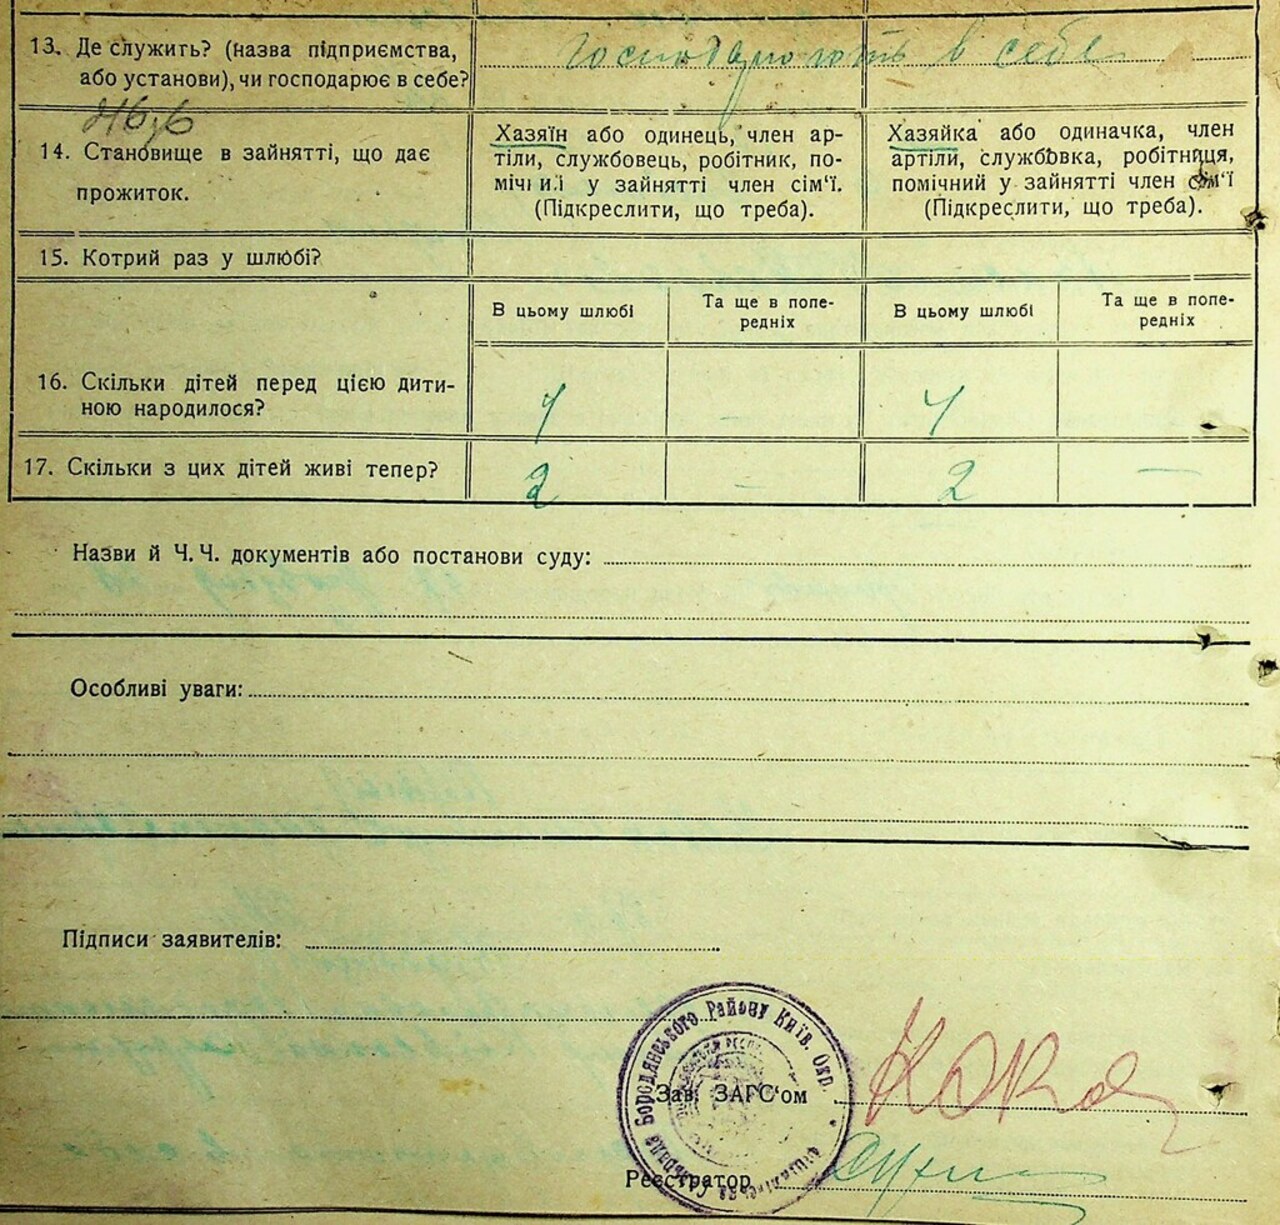 13. Де служить? (назва підприємства,
або установи), чи господарює в себе?
Господарюють в себе
14. Становище в зайнятті, що дає
прожиток.
Хазяїн або одинець, член ар-
тіли, службовець, робітник, по-
мічний у зайнятті член сім‘ї.
(Підкреслити, що треба).
Хазяйка або одиначка, член
артіли, службовка, робітниця,
помічний у зайнятті член сім‘ї
(Підкреслити, що треба).
15. Котрий раз у шлюбі?
В цьому шлюбі
Та ще в попе-
редніх
В цьому шлюбі
Та ще в попе-
редніх
16. Скільки дітей перед цією дити-
ною народилося?
4 – 4
17. Скільки з цих дітей живі тепер?
2 – 2 –
Назви й Ч. Ч. документів або постанови суду:
Особливі уваги:
Підписи заявителів:
Бородянського Району Київ. Окр.
Зав. ЗАГС‘ом
Реєстратор